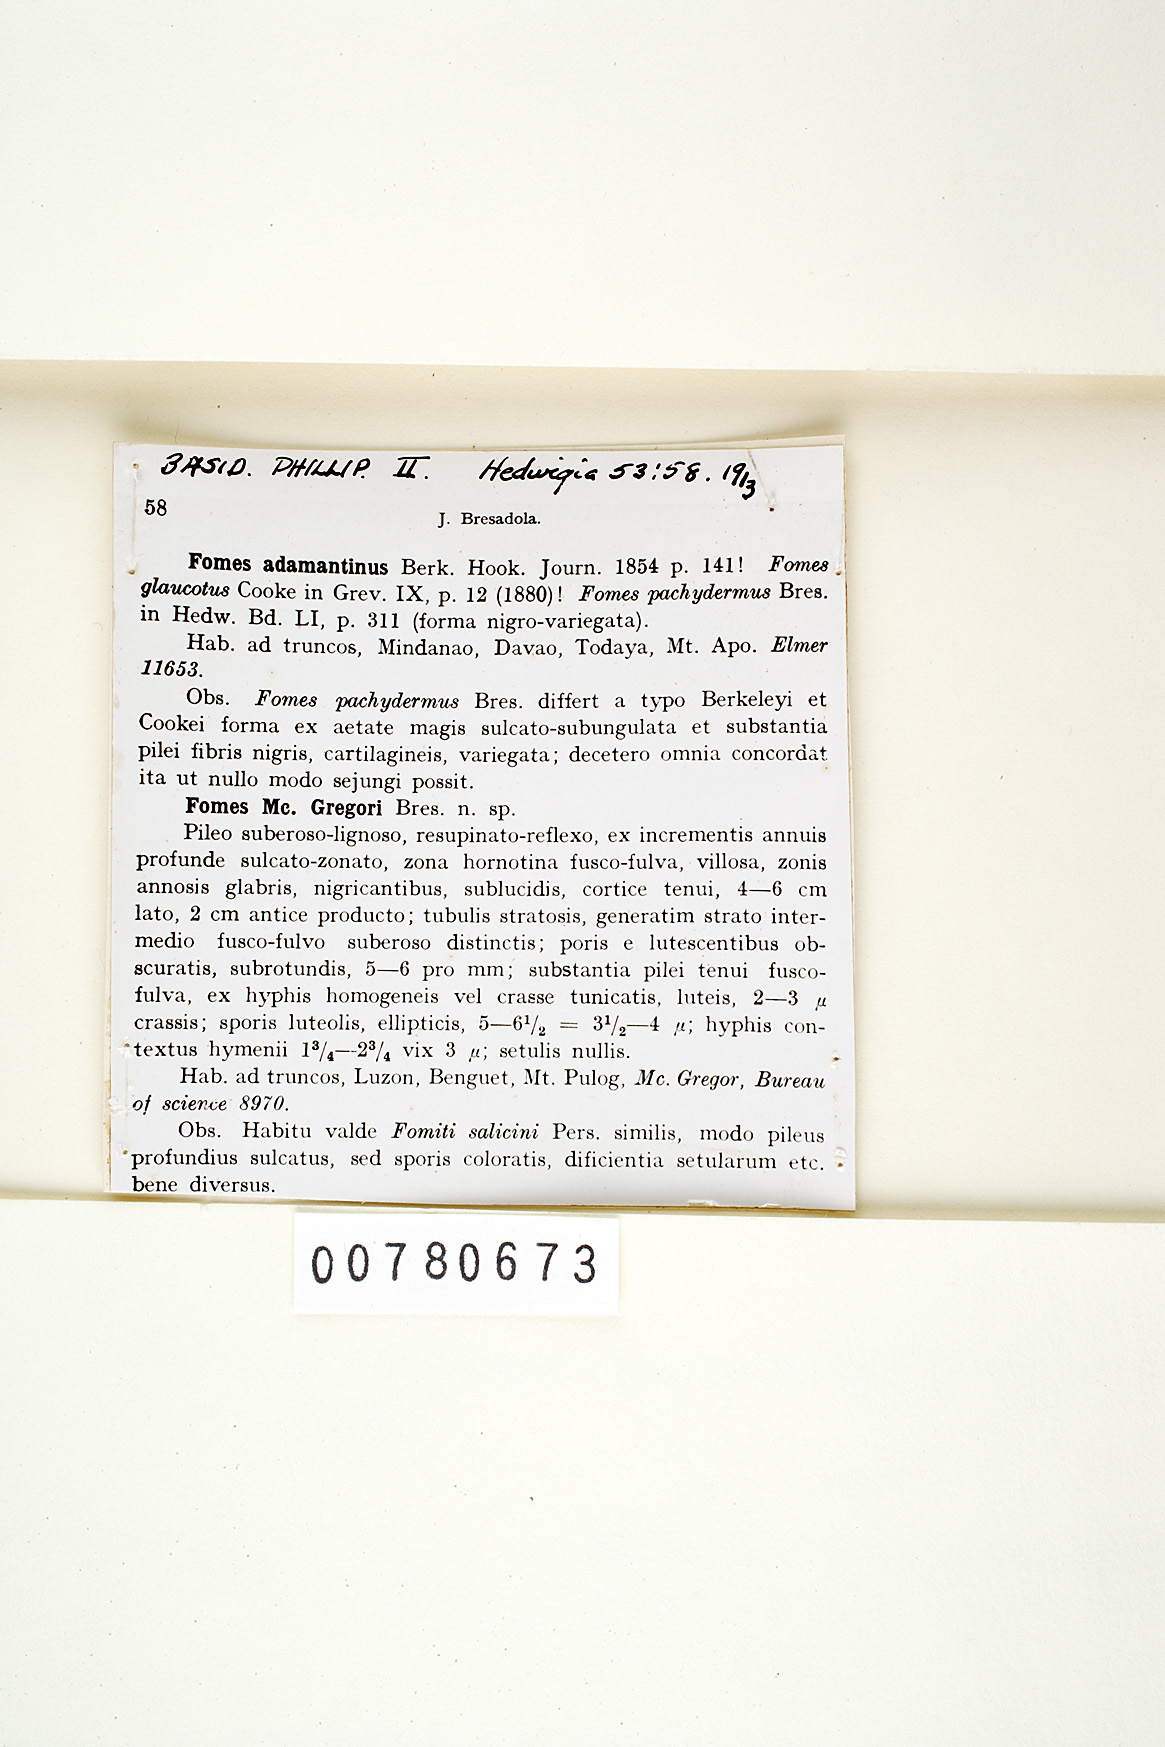 BASID. PHILLIP. II. Hedwigia 53:58. 1913
58
J. Bresadola.
Fomes adamantinus Berk. Hook. Journ. 1854 p. 141! Fomes
glaucotus Cooke in Grev. IX, p. 12 (1880)! Fomes pachydermus Bres.
in Hedw. Bd. LI, p. 311 (forma nigro-variegata).
Hab. ad truncos, Mindanao, Davao, Todaya, Mt. Apo. Elmer
11653.
Obs. Fomes pachydermus Bres. differt a typo Berkeleyi et
Cookei forma ex aetate magis sulcato-subungulata et substantia
pilei fibris nigris, cartilagineis, variegata; decetero omnia concordat
ita ut nullo modo sejungi possit.
Fomes Mc. Gregori Bres. n. sp.
Pileo suberoso-lignoso, resupinato-reflexo, ex incrementis annuis
profunde sulcato-zonato, zona hornotina fusco-fulva, villosa, zonis
annosis glabris, nigricantibus, sublucidis, cortice tenui, 4—6 cm
lato, 2 cm antice producto; tubulis stratosis, generatim strato inter-
medio fusco-fulvo suberoso distinctis; poris e lutescentibus ob-
scuratis, subrotundis, 5—6 pro mm; substantia pilei tenui fusco-
fulva, ex hyphis homogeneis vel crasse tunicatis, luteis, 2—3 µ
crassis; sporis luteolis, ellipticis, 5—6¹/₂ = 3¹/₂—4 µ; hyphis con-
textus hymenii 1³/₄—2³/₄ vix 3 µ; setulis nullis.
Hab. ad truncos, Luzon, Benguet, Mt. Pulog, Mc. Gregor, Bureau
of science 8970.
Obs. Habitu valde Fomiti salicini Pers. similis, modo pileus
profundius sulcatus, sed sporis coloratis, dificientia setularum etc.
bene diversus.
00780673